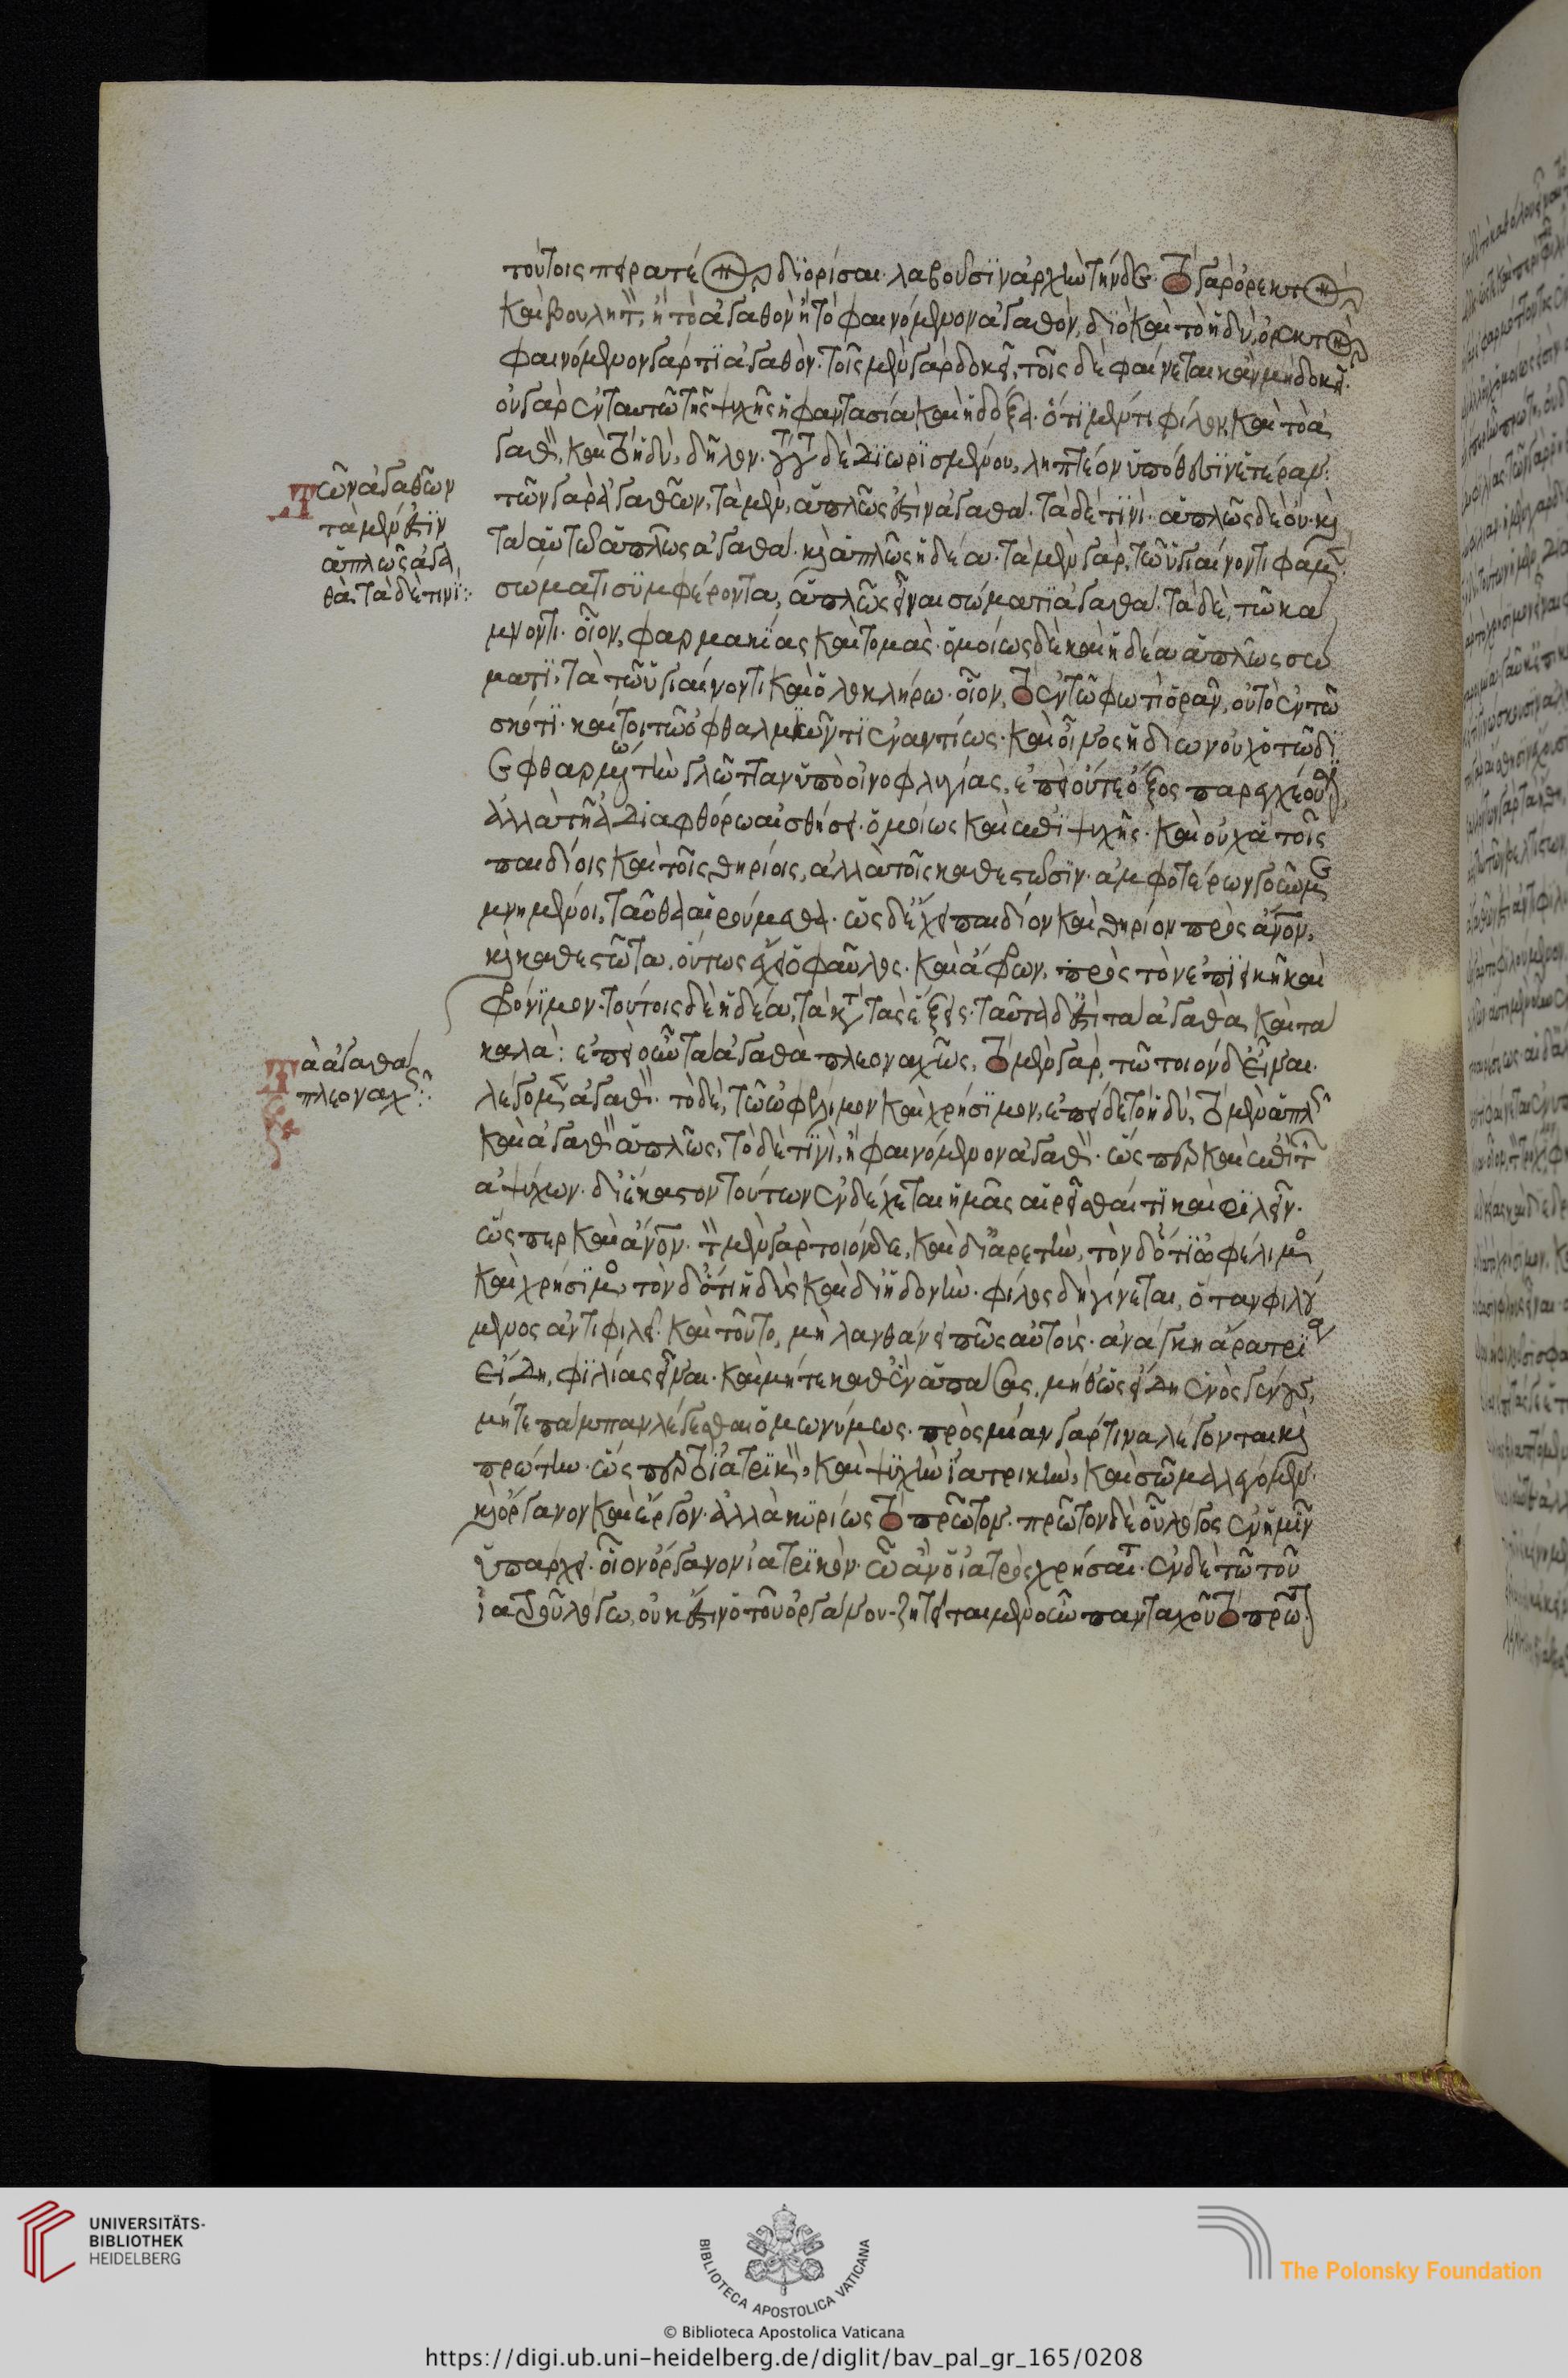 τούτοις πειρατέον διορίσαι· λαβοῦσιν ἀρχὴν τήνδε· τὸ γὰρ ὀρεκτὸν
καὶ βουλητὸν, ἢ τὸ ἀγαθὸν ἢ τὸ φαινόμενον ἀγαθόν, διὸ καὶ τὸ ἡδὺ, ὀρεκτὸν
φαινόμενον γάρ τι ἀγαθὸν· τοῖς μὲν γὰρ δοκεῖ, τοῖς δὲ φαίνεται κἂν μὴ δοκῇ·
οὐ γὰρ ἐν ταυτῶ τῆς ψυχῆς ἡ φαντασία καὶ ἡ δόξα· ὅτι μέντι φίλον καὶ τὸ ἀ
γαθὸν, καὶ τὸ ἡδὺ, δῆλον· τούτου δὲ διωρισμένου, ληπτέον ὑπόθεσιν ἑτέραν·
Τῶν ἀγαθῶν
τὰ μέν ἐστιν
ἁπλῶς ἀγα
θὰ· τὰ δὲ τινί:
τῶν γὰρ ἀγαθῶν, τὰ μὲν, ἁπλῶς ἐστὶν ἀγαθά· τὰ δέ τινὶ· ἁπλῶς δὲ οὔ· καὶ
τὰ αὐτὰ ἁπλῶς ἀγαθὰ· καὶ ἁπλῶς ἡδέα· τὰ μὲν γὰρ, τῶ ὑγιαίνοντι φαμὲν
σώματι συμφέροντα, ἁπλῶς εἶναι σώματι ἀγαθά· τὰ δὲ, τῶ κά
μνοντι· οἷον, φαρμακίας καὶ τομὰς· ὁμοίως δὲ καὶ ἡδέα ἁπλῶς σώ
ματι, τὰ τῶ ὑγιαίνοντι καὶ ὁλοκλήρω· οἷον, τὸ ἐν τῶ φωτὶ ὁρᾶν, οὐ τὸ ἐν τῶ
σκότι· καίτοι τῶ ὀφθαλμιῶντι ἐναντίως· καὶ οἶνος ἡδίων οὐχ ὁ τῶ δι
εφθαρμένω τὴν γλῶτταν ὑπὸ οἰνοφλυγίας, ἐπεὶ οὔτε ὄξος παρεγχέουσιν
ἀλλὰ τῆ ἀδιαφθόρω αἰσθήσει· ὁμοίως καὶ ἐπὶ ψυχῆς· καὶ οὐχ ἃ τοῖς
παιδίοις καὶ τοῖς θηρίοις, ἀλλὰ τοῖς καθεστῶσιν· ἀμφοτέρων γοῦν με
μνημένοι, ταῦθ᾽ αἱρούμεθα· ὡς δὲ ἔχει παιδίον καὶ θηρίον πρὸς ἄνον,
καὶ καθεστῶτα, οὕτως ἔχει ὁ φαῦλος· καὶ ἄφρων, πρὸς τὸν ἐπιεικῆ καὶ
φρόνιμον· τούτοις δὲ ἡδέα, τὰ κατὰ τὰς ἕξεις· ταῦτα δ᾽ ἐστὶ τὰ ἀγαθὰ καὶ τὰ
Τὰ ἀγαθὰ
πλεοναχῶς:
καλά: ἐπεὶ οὖν τὰ ἀγαθὰ πλεοναχῶς, τὸ μὲν γὰρ, τῶ τοιόνδ᾽ εἶναι
λέγομεν ἀγαθὸν· τὸ δὲ, τῶ ὠφέλιμον καὶ χρήσιμον, ἐπεὶ δὲ τὸ ἡδὺ, τὸ μὲν ἁπλῶς
καὶ ἀγαθὸν ἁπλῶς, τὸ δὲ τινὶ, ἢ φαινόμενον ἀγαθὸν· ὥσπερ καὶ ἐπὶ τῶν
ἀψύχων· δι᾽ ἕκαστον τούτων ἐνδέχεται ἡμᾶς αἱρεῖσθαί τι καὶ φιλεῖν·
ὥσπερ καὶ ἄνον· τὸν μὲν γὰρ τοιόνδε, καὶ δι᾽ ἀρετὴν, τὸν δ᾽ ὅτι ὠφέλιμος
καὶ χρήσιμος τὸν δ᾽ ὅτι ἡδὺς καὶ δι᾽ ἡδονὴν· φίλος δὴ γίνεται, ὅταν φιλού
μενος ἀντιφιλεῖ· καὶ τοῦτο, μὴ λανθάνει πῶς αὐτοὺς· ἀνάγκη ἄρα τρία
εἴδη, φιλίας εἶναι· καὶ μήτε καθ᾽ ἓν ἁπάσας, μήθ᾽ ὡς εἴδη ἑνὸς γένους,
μήτε πάμπαν λέγεσθαι ὁμωνύμως· πρὸς μίαν γάρ τινα λέγονται καὶ
πρώτην· ὥσπερ τὸ ἰατρικὸν, καὶ ψυχὴν ἰατρικὴν, καὶ σῶμα λέγομεν·
καὶ ὄργανον καὶ ἔργον· ἀλλὰ κυρίως τὸ πρῶτον· πρῶτον δὲ οὗ λόγος ἐν ἡμῖν
ὑπάρχει· οἷον ὄργανον ἰατρικὸν· ὧ ἂν ὁ ἰατρὸς χρήσαιτο· ἐν δὲ τῶ τοῦ
ἰατροῦ λόγω, οὐκ ἔστιν ὁ τοῦ ὀργάνου· ζητεῖται μὲν οὖν πανταχοῦ τὸ πρῶτον·
UNIVERSITÄTS-
BIBLIOTHEK
HEIDELBERG
BIBLIOTECA APOSTOLICA VATICANA
The Polonsky Foundation
© Biblioteca Apostolica Vaticana
https://digi.ub.uni-heidelberg.de/diglit/bav_pal_gr_165/0208